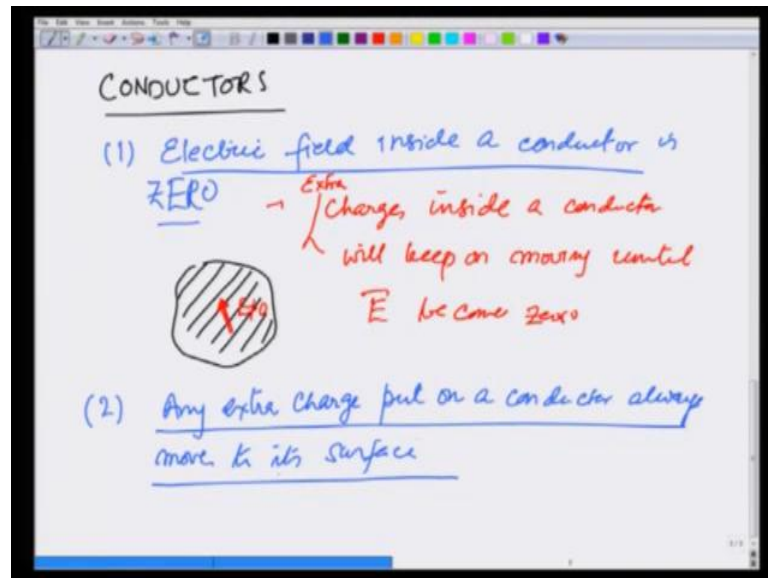 File Edit View Insert Actions Tools Help
CONDUCTORS
(1) Electric field inside a conductor is
ZERO → Extra
Charges inside a conductor
will keep on moving until
E become zero
E≠0
(2) Any extra charge put on a conductor always
move to its surface